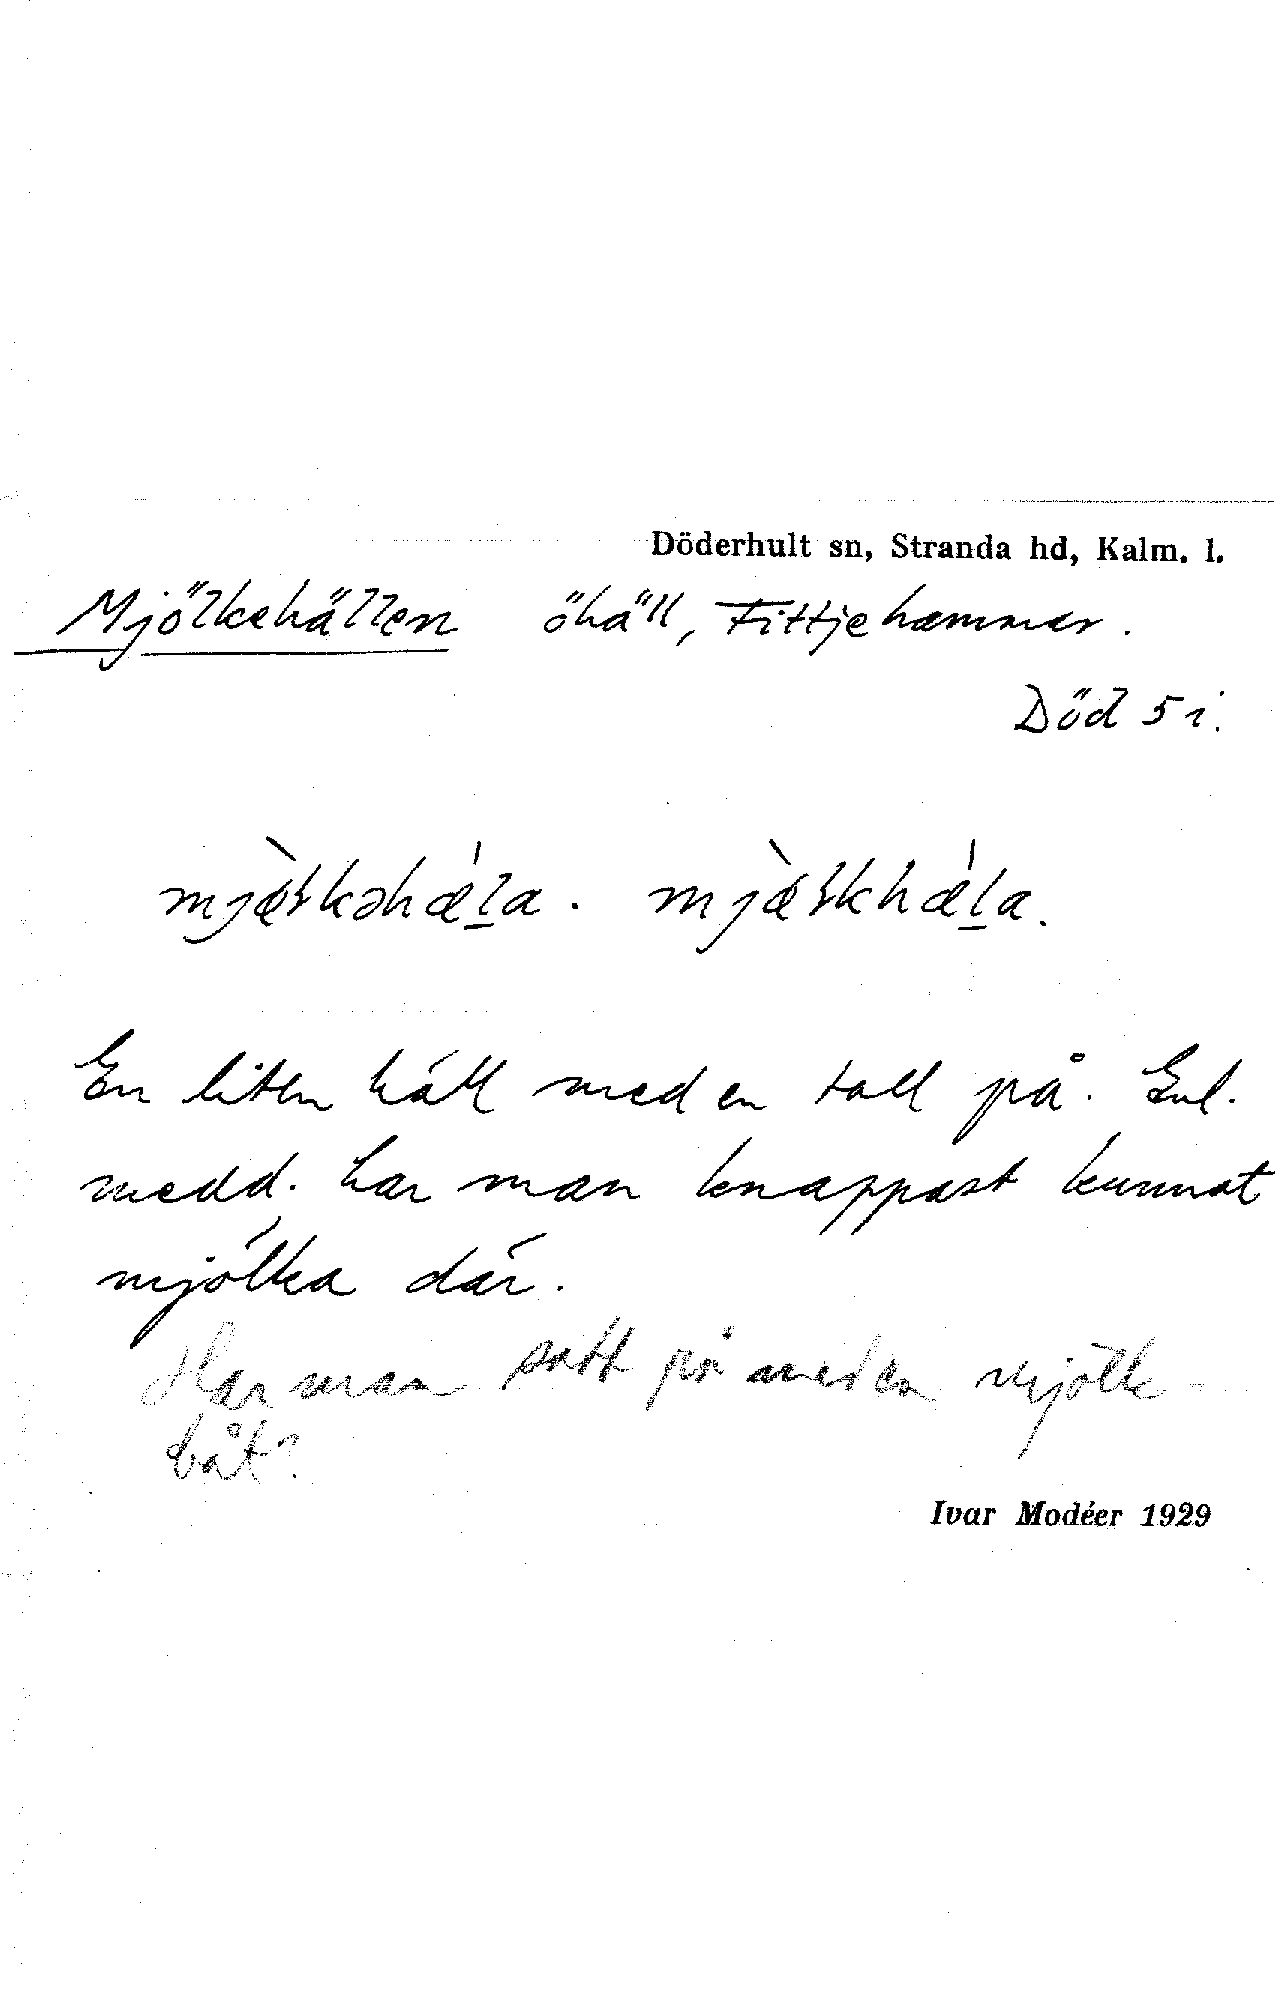 Döderhult sn, Stranda hd, Kalm. l.
Mjölkehällen öhäll, Fittjehammar.
Död 5 i.
mjæ̀ɫkəhǽl̠a. mjæ̀ɫkhǽl̠a.
En liten häll med en tall på. Enl.
medd. har man knappast kunnat
mjölka där.
Har man stött på med en mjölk-
båt?
Ivar Modéer 1929